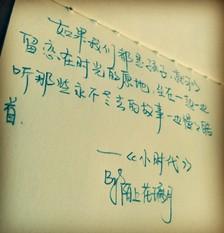 如果我们都是孩子,就可以
留恋在时光的原地,坐在一起一边
听那些永不老去的故事一边慢慢皓
首.
——《小时代》
By:陌上花满月